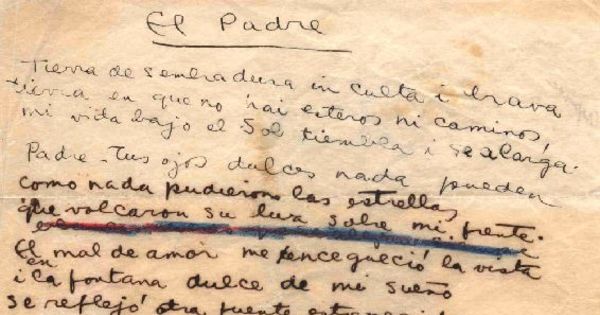 El Padre
Tierra de sembradura inculta i brava
tierra en que no hai esteros ni caminos,
mi vida bajo el Sol tiembla i se alarga.
Padre. Tus ojos dulces nada pueden
como nada pudieron las estrellas
que volcaron su luz sobre mi frente.
El mal de amor me encegueció la vista
i en la fontana dulce de mi sueño
se reflejó otra fuente